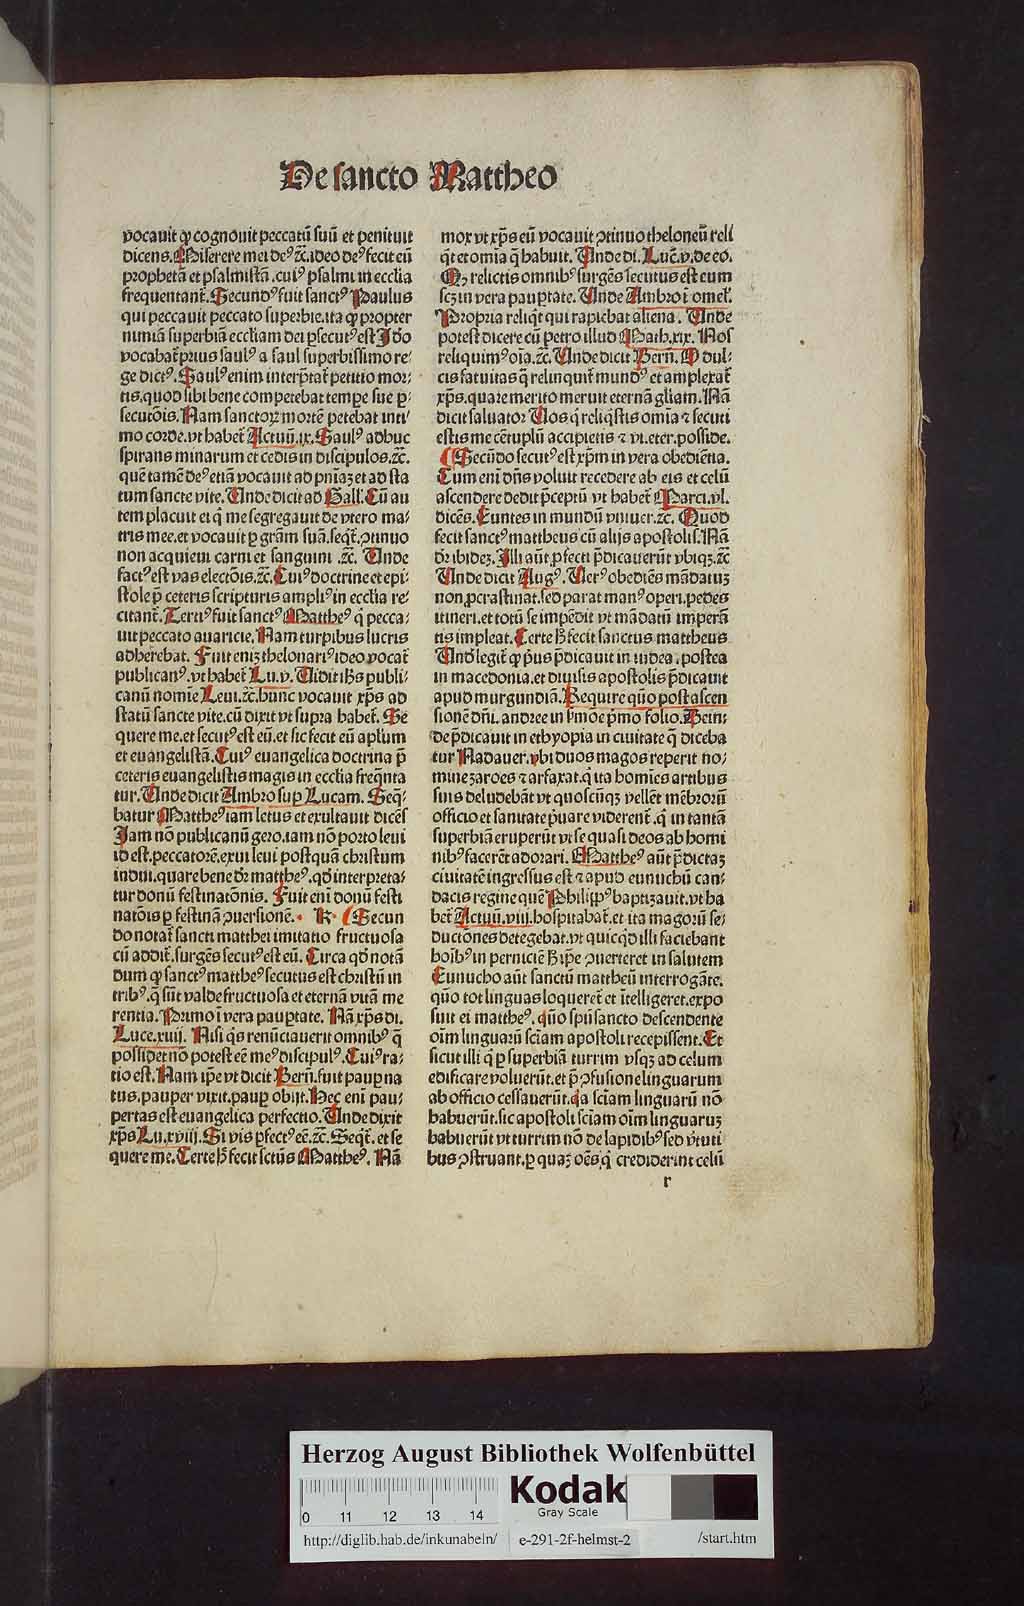 De sancto Mattheo
vocauit qꝫ cognouit peccatū suū et penituit
dicens. Miserere mei deꝰ ⁊c̄. ideo deꝰ fecit eū
prophetā et psalmistā. cuiꝰ psalmi in ecclīa
frequentanť. Secundꝰ fuit sanctꝰ Paulus
qui peccauit peccato superbie. ita ꝙ propter
nimiā superbiā eccl̄iam dei ꝑsecutꝰ est Idō
vocabať prius saulꝰ a saul superbissimo re⸗
ge dictꝰ. Saulꝰ enim interp̄tať petitio mor⸗
tis. quod sibi bene competebat tempe sue ꝑ⸗
secutōis. Nam sanctoꝝ mortē petebat inti⸗
mo corde. vt habeť Actuū. ix. Saulꝰ adhuc
spirans minarum et cedis in discipulos. ⁊c̄.
quē tamē deꝰ etiā vocauit ad pn̄iaꝫ et ad sta
tum sancte vite. Unde dicit ad Gall. Cū au
tem placuit ei q̄ me segregauit de vtero ma⸗
tris mee. et vocauit ꝑ grām suā. seqť. ꝯtinuo
non acquieui carni et sanguini ⁊c̄. Unde
factꝰ est vas electōis. ⁊c̄. Cuiꝰ doctrine et epi⸗
stole p̄ ceteris scripturis ampliꝰ in eccl̄ia re⸗
citanť. Tertiꝰ fuit sanctꝰ Mattheꝰ q̄ pecca⸗
uit peccato auaricie. Nam turpibus lucris
adherebat. Fuit eniꝫ thelonariꝰ ideo vocať
publicanꝰ. vt habeť Lu. v. Uidit ih̄s publi⸗
canū nomīe Leui. ⁊c̄. hunc vocauit xp̄s ad
statū sancte vite. cū dixit vt supra habeť. Se
quere me. et secutꝰ est eū. et sic fecit eū apl̄um
et euangelistā. Cuiꝰ euangelica doctrina p̄
ceteris euangelistis magis in eccl̄ia freq̄nta
tur. Unde dicit Ambro sup Lucam. Seq̄⸗
batur Mattheꝰ iam letus et exultauit dicēs
Iam nō publicanū gero. iam nō porto leui
id est. peccatorē. exui leui postquā christum
indui. quare bene dr̄ mattheꝰ. qd̄ interpreta⸗
tur donū festinatōnis. Fuit eni donū festi
natōis ꝑ festinā ꝯuersionē. R. Secun
do notať sancti matthei imitatio fructuosa
cū addiť. surgēs secutꝰ est eū. Circa qd̄ notā
dum ꝙ sanctꝰ mattheꝰ secutus est christū in
tribꝰ. q̄ sūt valde fructuosa et eternā vitā me
rentia. Primo ī vera paup̄tate. Nā xp̄s di.
Luce. xiiij. Nisi q̄s renūciauerit omnibꝰ q̄
possidet nō potest eē meꝰ discipulꝰ. Cuiꝰ ra⸗
tio est. Nam ip̄e vt dicit Bern̄. fuit paup na
tus. pauper vixit. paup obijt. Hec eni pau⸗
pertas est euangelica perfectio. Unde dixit
xp̄s Lu. xviij. Si vis ꝑfectꝰ eē. ⁊c̄. Seqť. et se
quere me. Certe h̄ fecit sctūs Mattheꝰ. Nā
mox vt xp̄s eū vocauit ꝯtinuo theloneū reli
q̄t et om̄ia q̄ habuit. Unde di. Luc̄. v. de eo.
Qꝫ relictis omnibꝰ surgēs secutus est eum
scꝫ in vera paup̄tate. Unde Ambro ī omel̄.
Propria reliq̄t qui rapiebat aliena. Unde
potest dicere cū petro illud Math. xix. Nos
reliquimꝰ oīa. ⁊c̄. Unde dicit Bern̄. O dul⸗
cis fatuitas q̄ relinquiť mundꝰ et amplexať
xp̄s. quare merito meruit eternā gl̄iam. Nā
dicit saluator Uos q̄ reliq̄stis om̄ia ⁊ secuti
estis me cētuplū accipietis ⁊ vi. eter. posside.
Secūdo secutꝰ est xp̄m in vera obediētia.
Cum enī dn̄s voluit recedere ab eis et celū
ascendere dedit p̄ceptū vt habeť Marci. vl.
dicēs. Euntes in mundū vniuer. ⁊c̄. Quod
fecit sanctꝰ mattheus cū alijs apostolis. Nā
dr̄ ibideꝫ. Illi aūt ꝓfecti p̄dicauerūt vbiqꝫ. ⁊c̄
Unde dicit Augꝰ. Uerꝰ obediēs mādatuꝫ
non ꝓcrastinat. sed parat manꝰ operi. pedes
itineri. et totū se impēdit vt mādatū imperā
tis impleat. Certe h̄ fecit sanctus mattheus
Und̄ legiť ꝙ p̄us p̄dicauit in iudea. postea
in macedonia. et diuisis apostolis p̄dicauit
apud murgundiā. Require quō post ascen
sionē dn̄i. andree in ẜmōe p̄mo folio. Dein⸗
de p̄dicauit in ethyopia in ciuitate q̄ diceba
tur Nadauer. vbi duos magos reperit no⸗
mine zaroes ⁊ arfaxat. q̄ ita homīes artibus
suis deludebāt vt quoscūqꝫ vellēt mēbrorū
officio et sanitate p̄uare viderenť. q̄ in tantā
superbiā eruperūt vt se quasi deos ab homi
nibꝰ facerēt adorari. Mattheꝰ aūt p̄dictaꝫ
ciuitatē ingressus est ⁊ apud eunuchū can⸗
dacis regine quē Philippꝰ baptizauit. vt ha
beť Actuū. viij. hospitabať. et ita magorū se⸗
ductōnes detegebat. vt quicq̄d illi faciebant
hoībꝰ in perniciē h̄ ip̄e ꝯuerteret in salutem
Eunucho aūt sanctū mattheū interrogāte.
quō tot linguas loquereť et ītelligeret. expo
suit ei mattheꝰ. quō spū sancto descendente
oīm linguarū sciam apostoli recepissent. Et
sicut illi q̄ ꝑ superbiā turrim vsqꝫ ad celum
edificare voluerūt. et p̄ ꝯfusione linguarum
ab officio cessauerūt. q̄a sciam linguarū nō
habuerūt. sic apostoli sciam oīm linguaruꝫ
habuerūt vt turrim nō de lapidibꝰ sed v̄tuti
bus ꝯstruant. ꝑ quaꝫ oēs. q̄ crediderint celū
r
Herzog August Bibliothek Wolfenbüttel
0 11 12 13 14
Kodak
Gray Scale
http://diglib.hab.de/inkunabeln/ e-291-2f-helmst-2 /start.htm